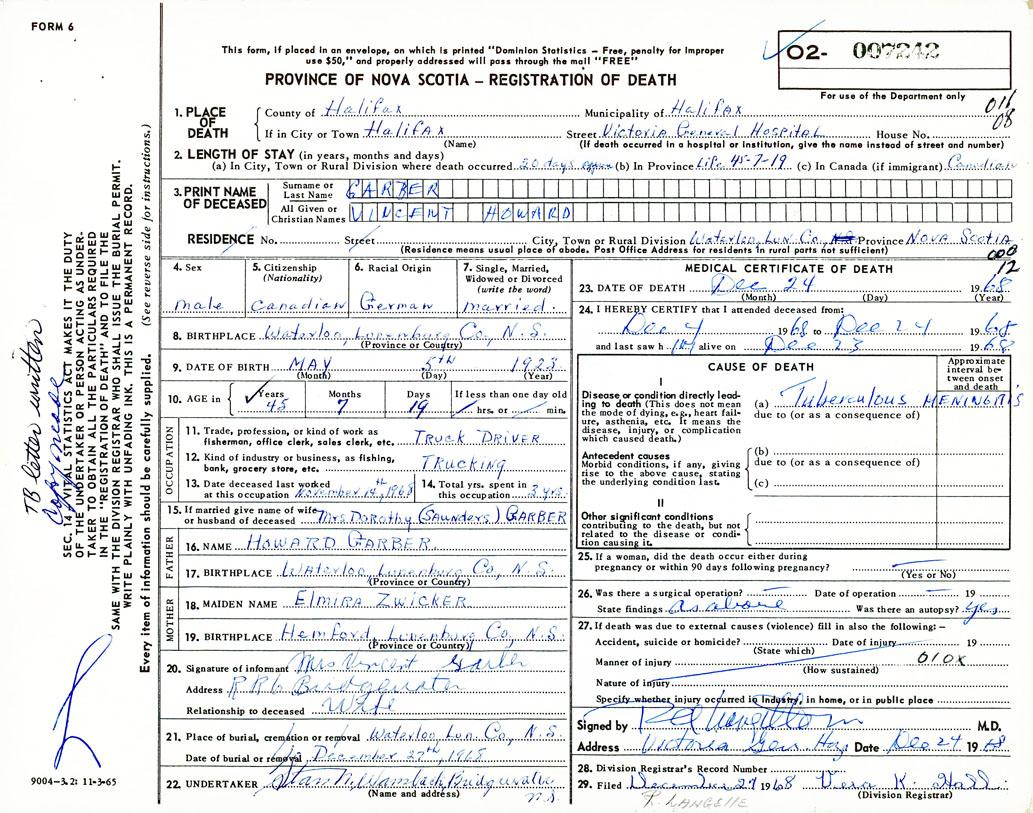 FORM 6
This form, if placed in an envelope, on which is printed "Dominion Statistics – Free, penalty for improper
use $50," and properly addressed will pass through the mail "FREE"
PROVINCE OF NOVA SCOTIA – REGISTRATION OF DEATH
O2- 007242
For use of the Department only
011
08
1. PLACE OF DEATH
County of Halifax Municipality of Halifax
If in City or Town Halifax Street Victoria General Hospital House No.
(Name) (If death occurred in a hospital or institution, give the name instead of street and number)
2. LENGTH OF STAY (in years, months and days)
(a) In City, Town or Rural Division where death occurred 20 days (b) In Province Life 45-7-19 (c) In Canada (if immigrant) Canadian
3. PRINT NAME OF DECEASED
Surname or Last Name GARBER
All Given or Christian Names VINCENT HOWARD
RESIDENCE No. Street City, Town or Rural Division Waterloo, Lun Co., Province NOVA SCOTIA
(Residence means usual place of abode. Post Office Address for residents in rural parts not sufficient)
008
12
4. Sex
male
5. Citizenship
(Nationality)
Canadian
6. Racial Origin
German
7. Single, Married,
Widowed or Divorced
(write the word)
married
8. BIRTHPLACE Waterloo, Lunenburg Co., N.S.
(Province or Country)
9. DATE OF BIRTH MAY 5th 1923
(Month) (Day) (Year)
10. AGE in Years Months Days If less than one day old
45 7 19 hrs. or min.
OCCUPATION
11. Trade, profession, or kind of work as
fisherman, office clerk, sales clerk, etc. TRUCK DRIVER
12. Kind of industry or business, as fishing,
bank, grocery store, etc. TRUCKING
13. Date deceased last worked
at this occupation November 14th, 1968
14. Total yrs. spent in
this occupation 3 yrs.
15. If married give name of wife
or husband of deceased Mrs Dorothy (Saunders) GARBER
FATHER
16. NAME HOWARD GARBER
17. BIRTHPLACE Waterloo, Lunenburg Co., N.S.
(Province or Country)
MOTHER
18. MAIDEN NAME ELMIRA ZWICKER
19. BIRTHPLACE Hemford, Lunenburg Co., N.S.
(Province or Country)
20. Signature of informant Mrs Vincent Garber
Address R R 6 Bridgewater
Relationship to deceased Wife
21. Place of burial, cremation or removal Waterloo, Lun. Co., N.S.
Date of burial or removal December 27th, 1968
22. UNDERTAKER Bridgewater
(Name and address) N.S.
MEDICAL CERTIFICATE OF DEATH
23. DATE OF DEATH Dec 24 1968
(Month) (Day) (Year)
24. I HEREBY CERTIFY that I attended deceased from:
Dec 4 1968 to Dec 24 1968
and last saw h im alive on Dec 23 1968
CAUSE OF DEATH
Approximate
interval be-
tween onset
and death
I
Disease or condition directly lead-
ing to death (This does not mean
the mode of dying, e.g., heart fail-
ure, asthenia, etc. It means the
disease, injury, or complication
which caused death.)
(a) Tuberculous MENINGITIS
due to (or as a consequence of)
Antecedent causes
Morbid conditions, if any, giving
rise to the above cause, stating
the underlying condition last.
(b)
due to (or as a consequence of)
(c)
II
Other significant conditions
contributing to the death, but not
related to the disease or condi-
tion causing it.
25. If a woman, did the death occur either during
pregnancy or within 90 days following pregnancy?
(Yes or No)
26. Was there a surgical operation? Date of operation 19
State findings as above Was there an autopsy? yes
27. If death was due to external causes (violence) fill in also the following: –
Accident, suicide or homicide? Date of injury 19
(State which)
Manner of injury 010X
(How sustained)
Nature of injury
Specify whether injury occurred in industry, in home, or in public place
Signed by M.D.
Address Victoria Gen Hosp Date Dec 24 1968
28. Division Registrar's Record Number
29. Filed December 27 1968 Vera K. Hall
(Division Registrar)
R. LANGILLE
TB letter written
copy made
SEC. 14, VITAL STATISTICS ACT MAKES IT THE DUTY
OF THE UNDERTAKER OR PERSON ACTING AS UNDER-
TAKER TO OBTAIN ALL THE PARTICULARS REQUIRED
IN THE "REGISTRATION OF DEATH" AND TO FILE THE
SAME WITH THE DIVISION REGISTRAR WHO SHALL ISSUE THE BURIAL PERMIT.
WRITE PLAINLY WITH UNFADING INK. THIS IS A PERMANENT RECORD.
Every item of information should be carefully supplied. (See reverse side for instructions.)
9004-3.2: 11-3-65